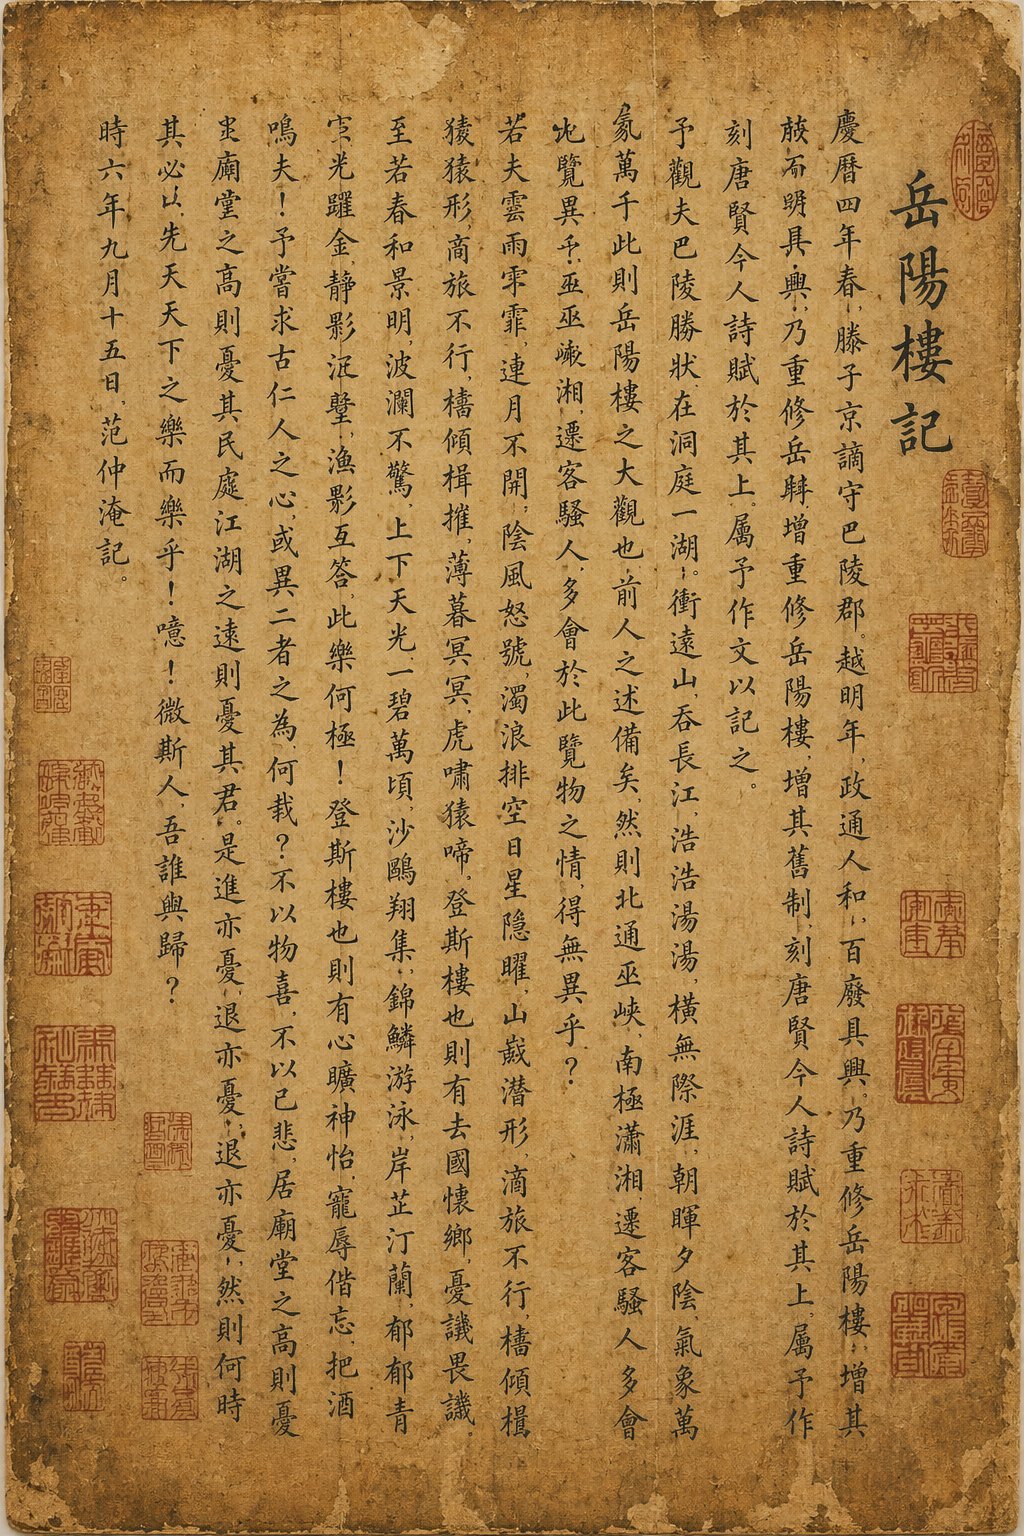 岳陽樓記
慶曆四年春，滕子京謫守巴陵郡。越明年，政通人和，百廢具興。乃重修岳陽樓，增其
而明具興，乃重修岳 增重修岳陽樓，增其舊制，刻唐賢今人詩賦於其上，屬予作
刻唐賢今人詩賦於其上。屬予作文以記之。
予觀夫巴陵勝狀，在洞庭一湖。衝遠山，吞長江，浩浩湯湯，橫無際涯，朝暉夕陰，氣象萬
萬千此則岳陽樓之大觀也，前人之述備矣，然則北通巫峽，南極瀟湘，遷客騷人多會
覽異 巫 湘，遷客騷人，多會於此覽物之情，得無異乎？
若夫雲雨 霏，連月不開，陰風怒號，濁浪排空日星隱曜，山 潛形，滴旅不行，檣傾
猿形，商旅不行，檣傾楫摧，薄暮冥冥，虎嘯猿啼，登斯樓也則有去國懷鄉，憂譏畏譏。
至若春和景明，波瀾不驚，上下天光，一碧萬頃，沙鷗翔集，錦鱗游泳，岸芷汀蘭，郁郁青
光躍金，靜影 ，漁影互答，此樂何極！登斯樓也則有心曠神怡，寵辱偕忘，把酒
鳴夫！予嘗求古仁人之心，或異二者之為，何哉？不以物喜，不以己悲，居廟堂之高則憂
廟堂之高則憂其民處江湖之遠則憂其君。是進亦憂，退亦憂，退亦憂，然則何時
其必以先天天下之樂而樂乎！噫！微斯人，吾誰與歸？
時六年九月十五日，范仲淹記。